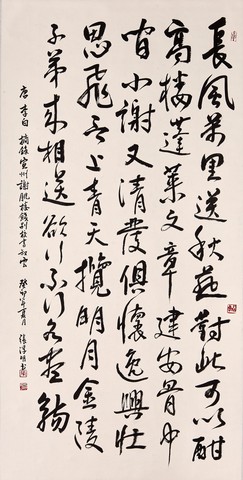 長風萬里送秋雁對此可以酣
高樓蓬萊文章建安骨中
間小謝又清發俱懷逸興壯
思飛欲上青天攬明月金陵
子弟來相送欲行不行各盡觴
唐李白摘錄宣州謝朓樓餞別校書叔雲 癸卯年夏月